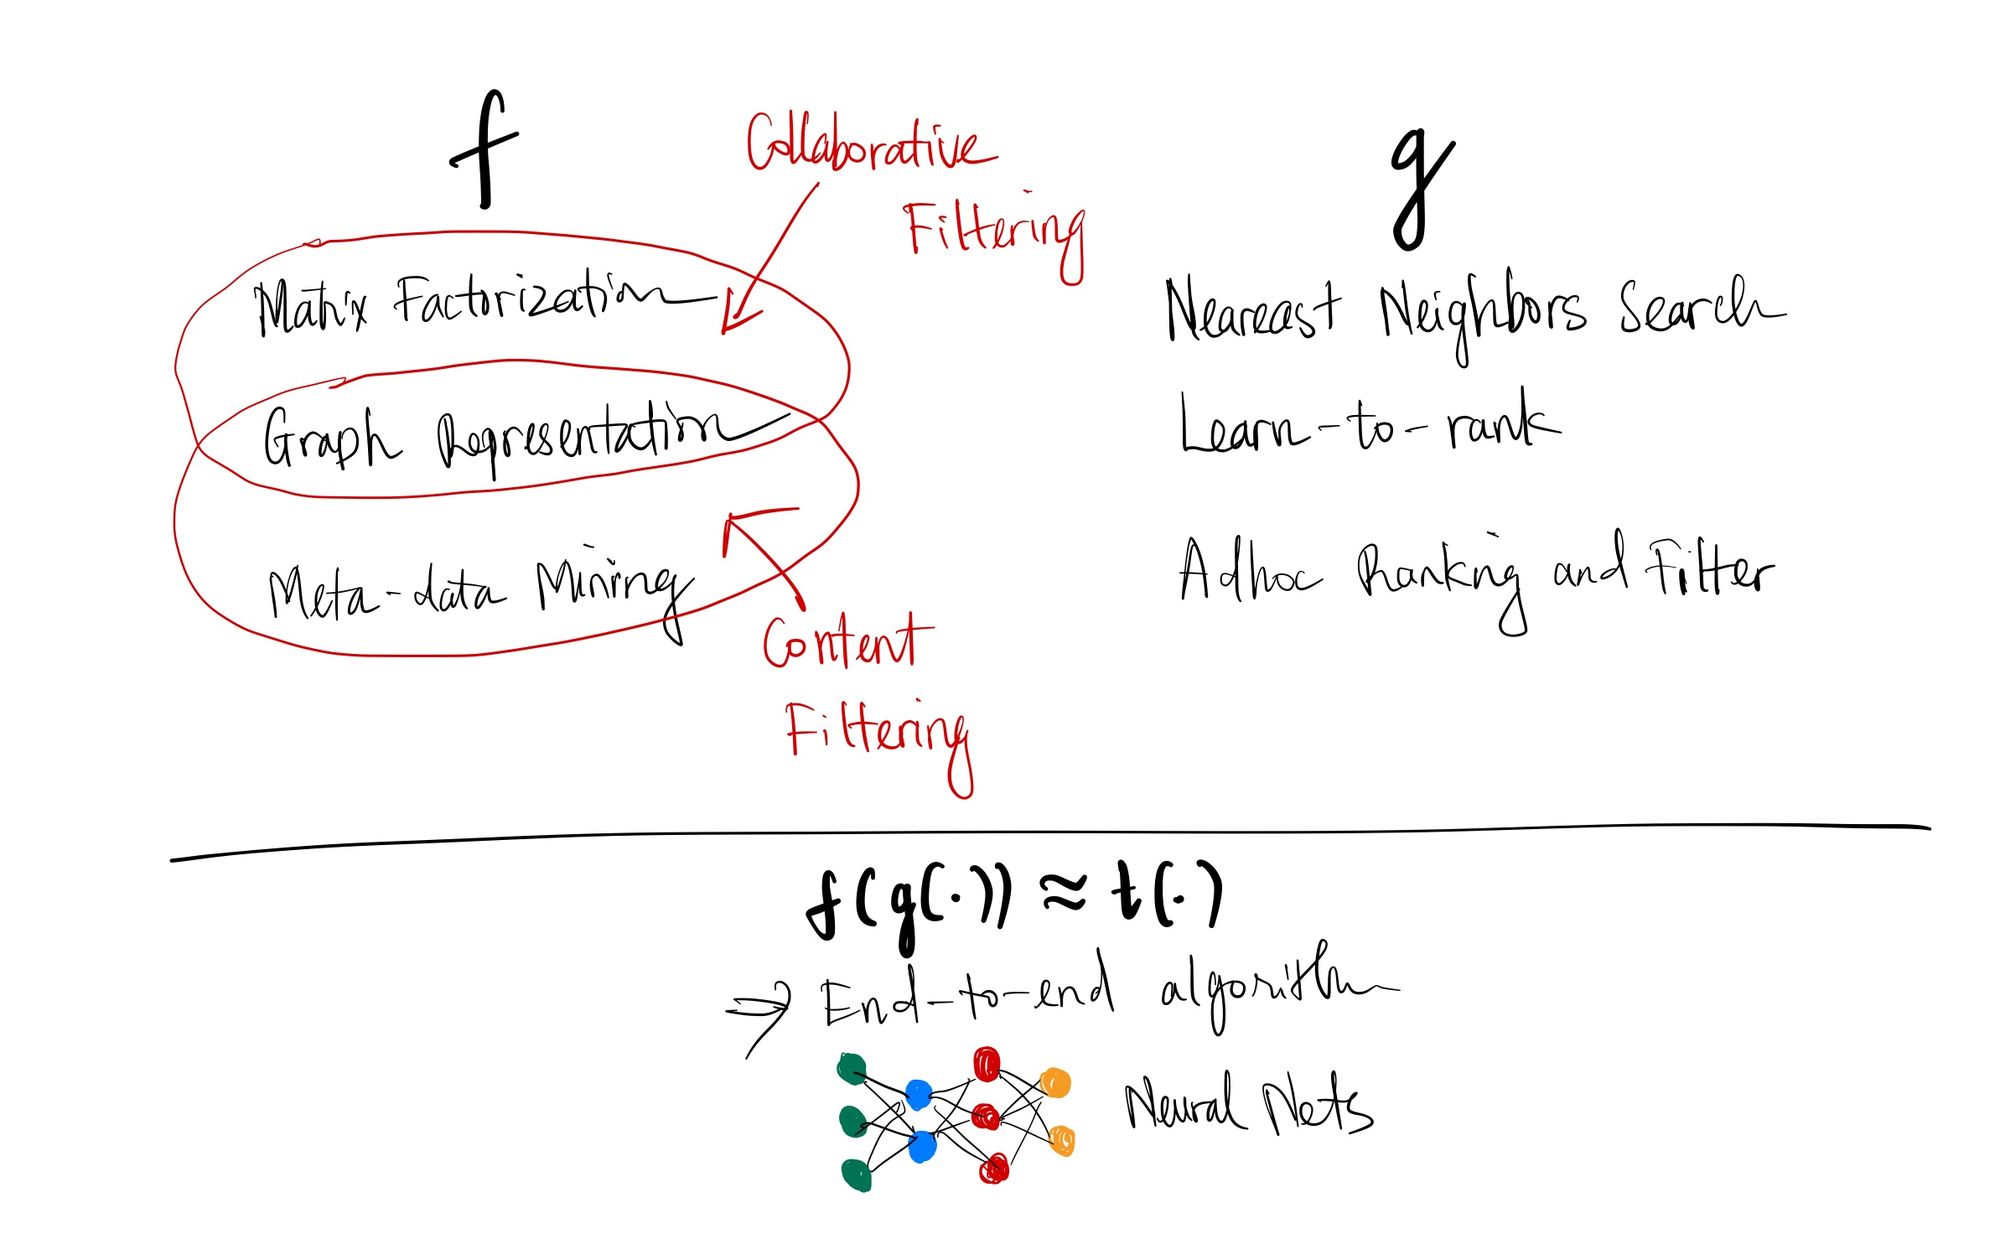 f
Collaborative
Filtering
Matrix Factorization
Graph Representation
Meta-data Mining
Content
Filtering
g
Neareast Neighbors Search
Learn-to-rank
Adhoc Ranking and Filter
f(g(·)) ≈ t(·)
⇒ End-to-end algorithm
Neural Nets